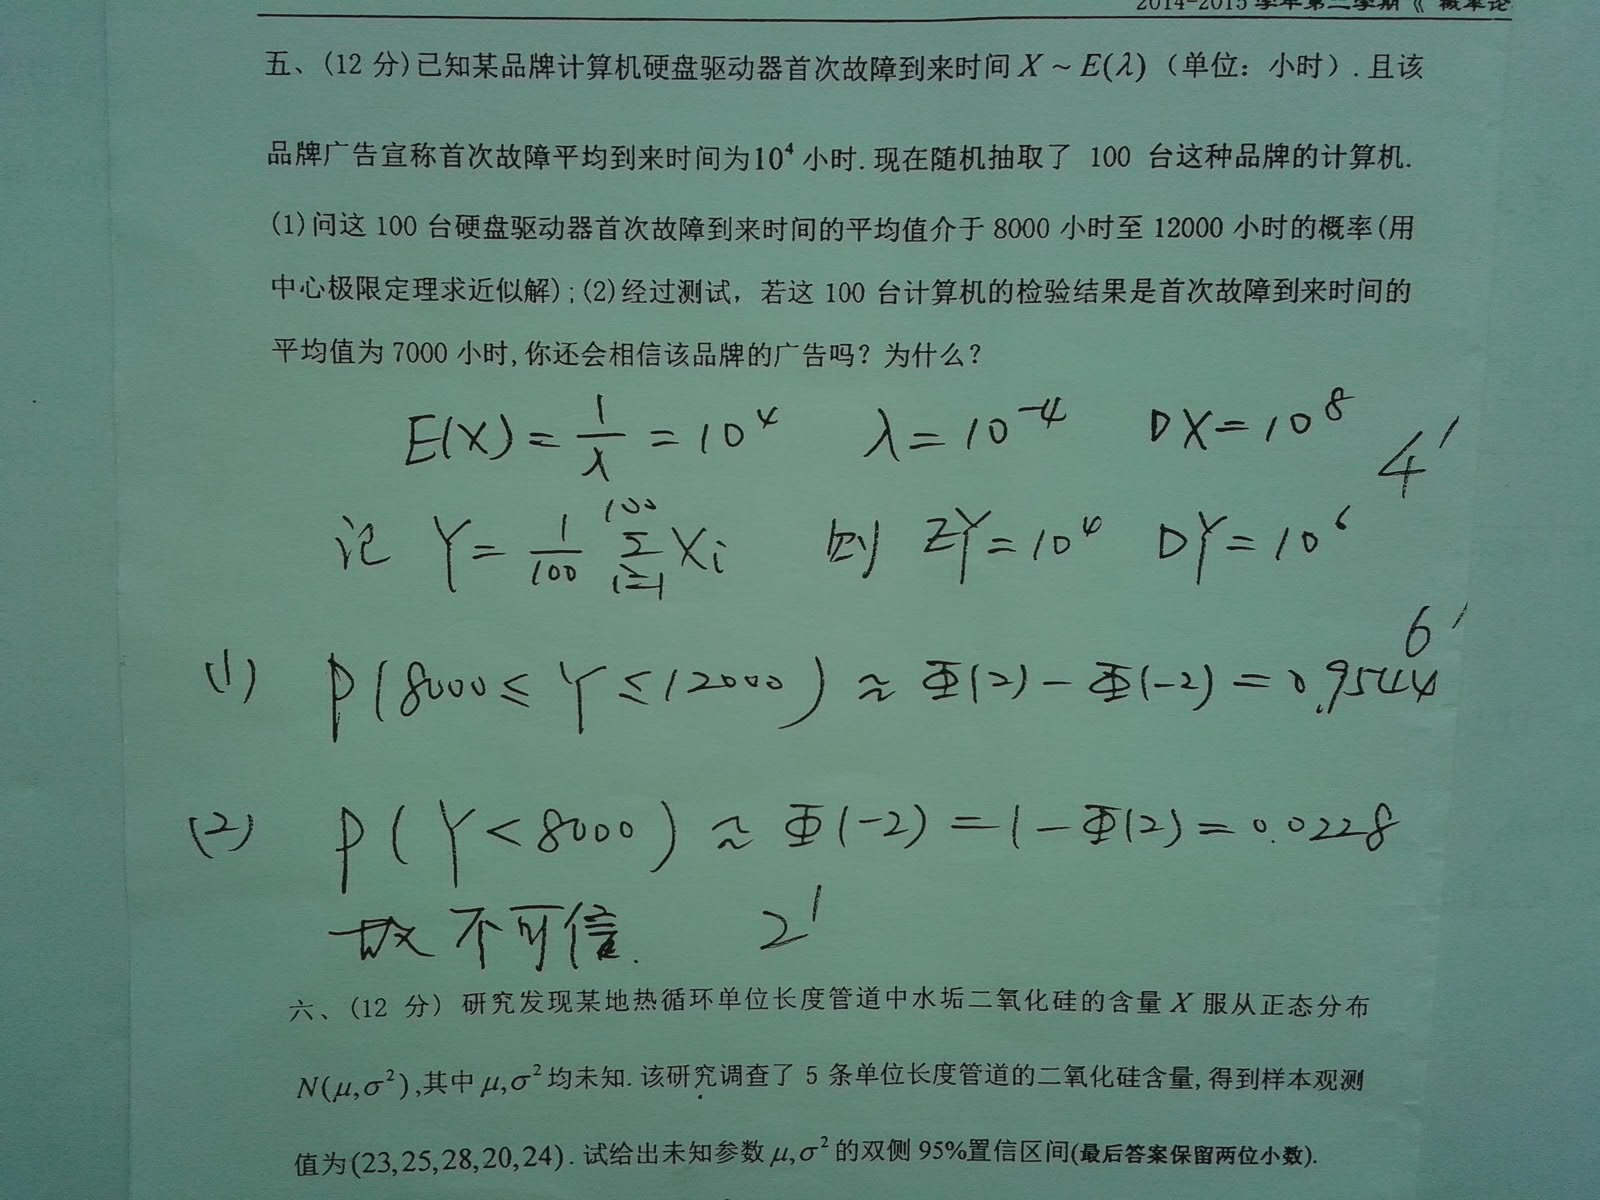 2014-2015 学年第二学期《 概率论
五、(12 分)已知某品牌计算机硬盘驱动器首次故障到来时间 X ~ E(λ)（单位：小时）. 且该
品牌广告宣称首次故障平均到来时间为10⁴ 小时. 现在随机抽取了 100 台这种品牌的计算机.
(1)问这 100 台硬盘驱动器首次故障到来时间的平均值介于 8000 小时至 12000 小时的概率(用
中心极限定理求近似解);(2)经过测试，若这 100 台计算机的检验结果是首次故障到来时间的
平均值为 7000 小时,你还会相信该品牌的广告吗？为什么？
E(X) = 1/λ = 10⁴ λ = 10⁻⁴ DX = 10⁸ 4'
记 Y = 1/100 Σᵢ₌₁¹⁰⁰ Xi 则 EY = 10⁴ DY = 10⁶
6'
(1) P(8000 ≤ Y ≤ 12000) ≈ Φ(2) − Φ(−2) = 0.9544
(2) P(Y < 8000) ≈ Φ(−2) = 1 − Φ(2) = 0.0228
故不可信. 2'
六、(12 分) 研究发现某地热循环单位长度管道中水垢二氧化硅的含量 X 服从正态分布
N(μ,σ²),其中 μ,σ² 均未知. 该研究调查了 5 条单位长度管道的二氧化硅含量,得到样本观测
值为(23,25,28,20,24). 试给出未知参数 μ,σ² 的双侧 95%置信区间(最后答案保留两位小数).